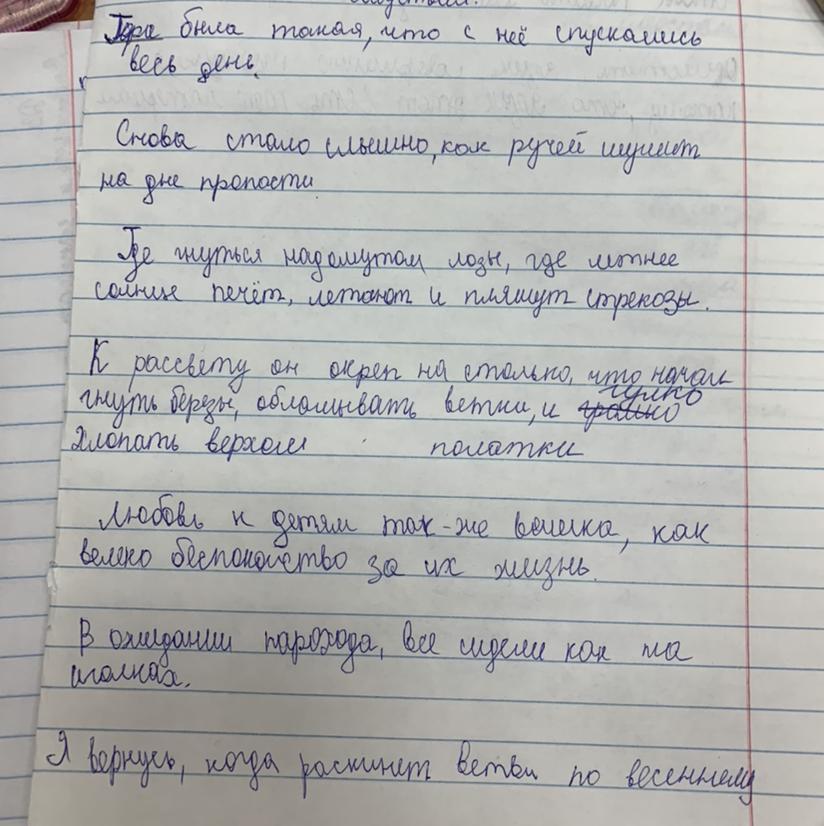 Гора была такая, что с неё спускались
весь день.
Снова стало слышно, как ручей шумит
на дне пропасти
Где гнуться над омутом лозы, где летнее
солнце печёт, летают и пляшут стрекозы.
К рассвету он окреп на столько, что начал
гнуть берёзы, обламывать ветки, и гулко
хлопать верхом палатки
Любовь к детям так-же велика, как
велеко беспокойство за их жизнь.
В ожидании парохода, все сидели как на
иголках.
Я вернусь, когда раскинет ветви по весеннему